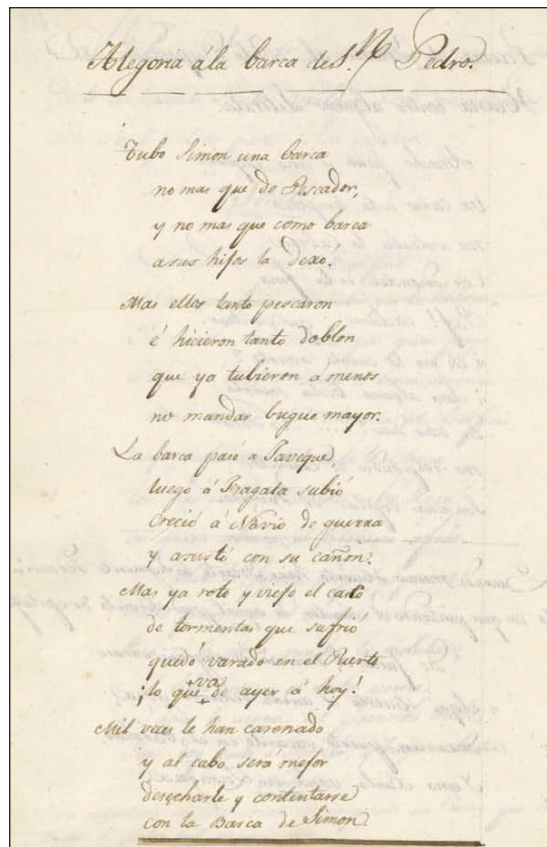 Alegoria á la barca de S.ⁿ Pedro.
Tubo Simon una barca
no mas que de Pescador,
y no mas que como barca
a sus hijos la dexo.
Mas ellos tanto pescaron
é hicieron tanto doblon
que ya tubieron á menos
no mandar buque mayor.
La barca pasó a Javeque,
luego á Fragata subió
Creció á Navio de guerra
y asustó con su cañon.
Mas ya roto y viejo el casco
de tormentas que sufrio
quedó varado en el Puerto
¡lo que va de ayer á hoy!
Mil veces le han carenado
y al cabo será mejor
desecharle y contentarse
con la Barca de Simon.